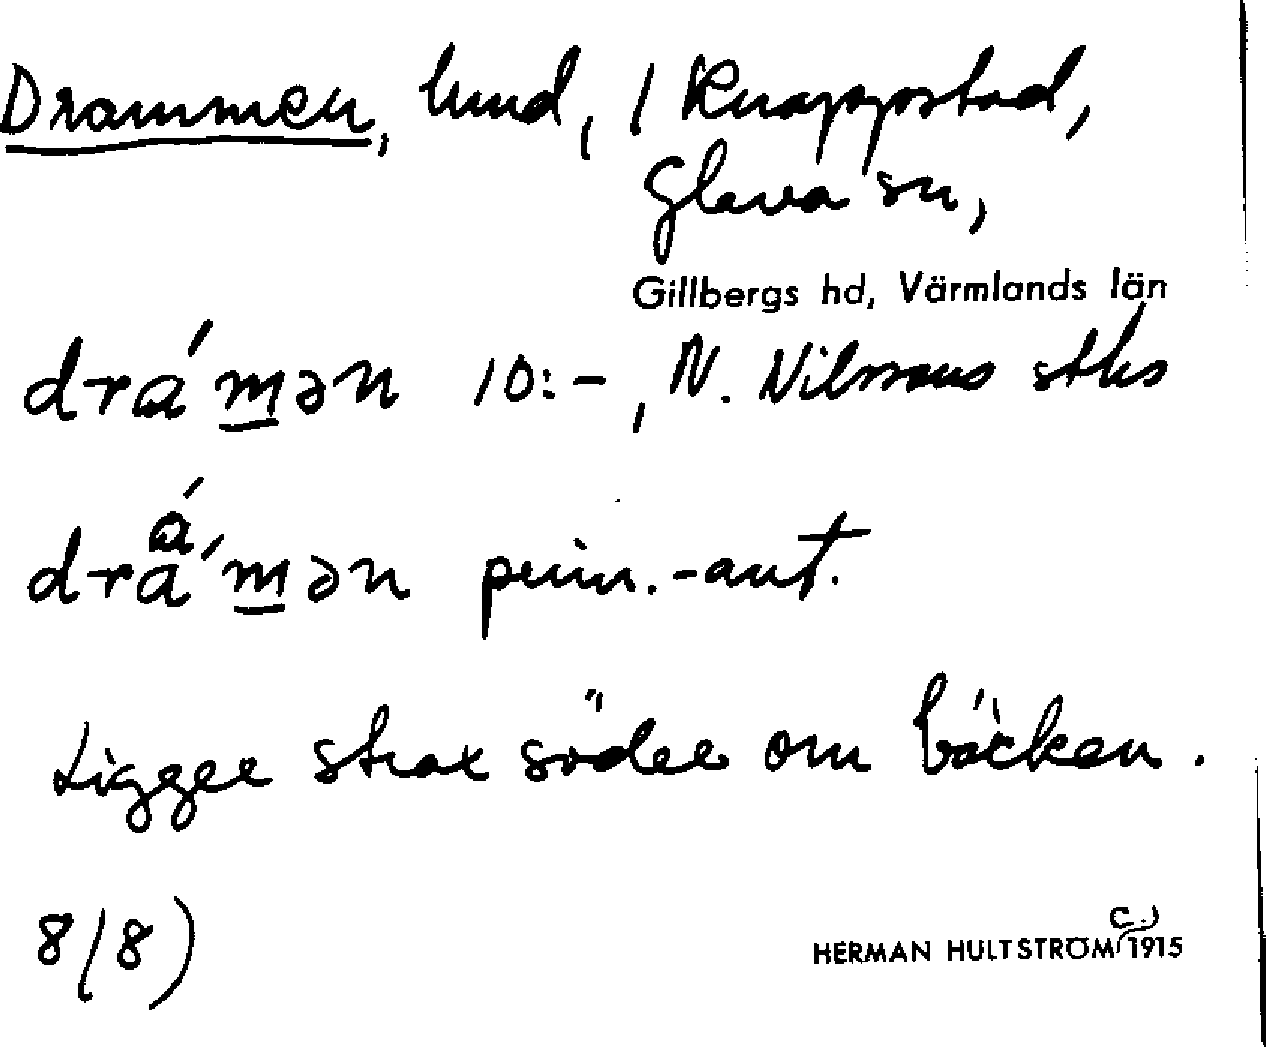 Drammen, lund, / Knappstad,
Glava sn,
Gillbergs hd, Värmlands län
drá m̲ən 10:-, N. Nilssons sths
á
drá m̲ən prim.-ant.
Ligger strax söder om bäcken.
8/8)
HERMAN HULTSTRÖM c.) 1915